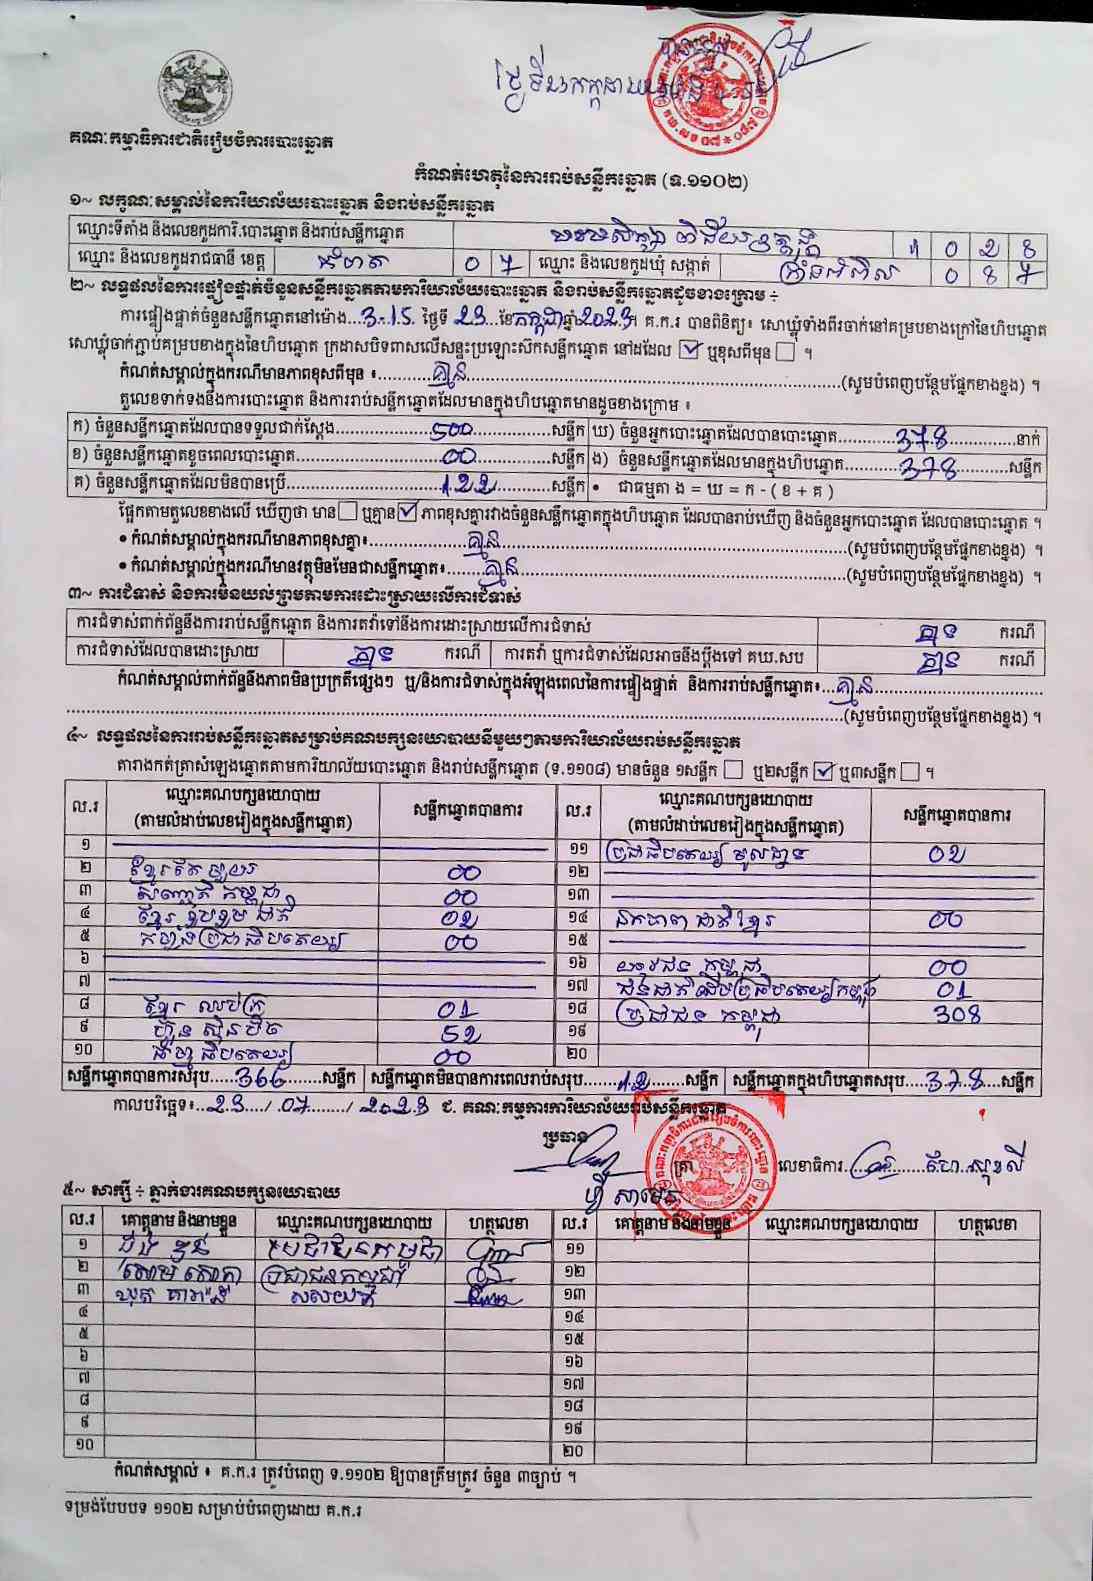 គណៈកម្មាធិការជាតិរៀបចំការបោះឆ្នោត
កំណត់ហេតុនៃការរាប់សន្លឹកឆ្នោត (ទ.១១០២)
១~ លក្ខណៈសម្គាល់នៃការិយាល័យបោះឆ្នោត និងរាប់សន្លឹកឆ្នោត
ឈ្មោះទីតាំង និងលេខកូដការិ.បោះឆ្នោត និងរាប់សន្លឹកឆ្នោត 1 0 2 8
ឈ្មោះ និងលេខកូដរាជធានី ខេត្ត កំពត 0 7 ឈ្មោះ និងលេខកូដឃុំ សង្កាត់ 0 8 7
២~ លទ្ធផលនៃការផ្ទៀងផ្ទាត់ចំនួនសន្លឹកឆ្នោតតាមការិយាល័យបោះឆ្នោត និងរាប់សន្លឹកឆ្នោតដូចខាងក្រោម ÷
ការផ្ទៀងផ្ទាត់ចំនួនសន្លឹកឆ្នោតនៅម៉ោង...3-15. ថ្ងៃទី 23...ខែកក្កដាឆ្នាំ2023។ គ.ក.រ បានពិនិត្យ៖ សោឃ្លុំទាំងពីរចាក់នៅគម្របខាងក្រៅនៃហិបឆ្នោត
សោឃ្លុំចាក់ភ្ជាប់គម្របខាងក្នុងនៃហិបឆ្នោត ក្រដាសបិទពាសលើសន្ទះប្រឡោះស៊កសន្លឹកឆ្នោត នៅដដែល ☑ ឬខុសពីមុន ☐ ។
កំណត់សម្គាល់ក្នុងករណីមានភាពខុសពីមុន ៖.......គ្មាន.......(សូមបំពេញបន្ថែមផ្នែកខាងខ្នង) ។
តួលេខទាក់ទងនឹងការបោះឆ្នោត និងការរាប់សន្លឹកឆ្នោតដែលមានក្នុងហិបឆ្នោតមានដូចខាងក្រោម ៖
ក) ចំនួនសន្លឹកឆ្នោតដែលបានទទួលជាក់ស្តែង.......500.......សន្លឹក ឃ) ចំនួនអ្នកបោះឆ្នោតដែលបានបោះឆ្នោត.......378.......នាក់
ខ) ចំនួនសន្លឹកឆ្នោតខូចពេលបោះឆ្នោត.......00.......សន្លឹក ង) ចំនួនសន្លឹកឆ្នោតដែលមានក្នុងហិបឆ្នោត.......378.......សន្លឹក
គ) ចំនួនសន្លឹកឆ្នោតដែលមិនបានប្រើ.......122.......សន្លឹក • ជាធម្មតា ង = ឃ = ក - ( ខ + គ )
ផ្អែកតាមតួលេខខាងលើ ឃើញថា មាន ☐ ឬគ្មាន ☑ ភាពខុសគ្នារវាងចំនួនសន្លឹកឆ្នោតក្នុងហិបឆ្នោត ដែលបានរាប់ឃើញ និងចំនួនអ្នកបោះឆ្នោត ដែលបានបោះឆ្នោត ។
• កំណត់សម្គាល់ក្នុងករណីមានភាពខុសគ្នា៖.......គ្មាន.......(សូមបំពេញបន្ថែមផ្នែកខាងខ្នង) ។
• កំណត់សម្គាល់ក្នុងករណីមានវត្ថុមិនមែនជាសន្លឹកឆ្នោត៖.......គ្មាន.......(សូមបំពេញបន្ថែមផ្នែកខាងខ្នង) ។
៣~ ការជំទាស់ និងការមិនយល់ព្រមតាមការដោះស្រាយលើការជំទាស់
ការជំទាស់ពាក់ព័ន្ធនឹងការរាប់សន្លឹកឆ្នោត និងការតវ៉ាទៅនឹងការដោះស្រាយលើការជំទាស់ គ្មាន ករណី
ការជំទាស់ដែលបានដោះស្រាយ គ្មាន ករណី ការតវ៉ា ឬការជំទាស់ដែលអាចនឹងប្តឹងទៅ គឃ.សប គ្មាន ករណី
កំណត់សម្គាល់ពាក់ព័ន្ធនឹងភាពមិនប្រក្រតីផ្សេងៗ ឬ/និងការជំទាស់ក្នុងអំឡុងពេលនៃការផ្ទៀងផ្ទាត់ និងការរាប់សន្លឹកឆ្នោត៖...គ្មាន.......
.......(សូមបំពេញបន្ថែមផ្នែកខាងខ្នង) ។
៤~ លទ្ធផលនៃការរាប់សន្លឹកឆ្នោតសម្រាប់គណបក្សនយោបាយនីមួយៗតាមការិយាល័យរាប់សន្លឹកឆ្នោត
តារាងកត់ត្រាសំឡេងឆ្នោតតាមការិយាល័យបោះឆ្នោត និងរាប់សន្លឹកឆ្នោត (ទ.១១០៨) មានចំនួន ១សន្លឹក ☐ ឬ២សន្លឹក ☑ ឬ៣សន្លឹក ☐ ។
ល.រ ឈ្មោះគណបក្សនយោបាយ (តាមលំដាប់លេខរៀងក្នុងសន្លឹកឆ្នោត) សន្លឹកឆ្នោតបានការ ល.រ ឈ្មោះគណបក្សនយោបាយ (តាមលំដាប់លេខរៀងក្នុងសន្លឹកឆ្នោត) សន្លឹកឆ្នោតបានការ
១ ១១ ប្រជាធិបតេយ្យ មូលដ្ឋាន 02
២ ខ្មែរតែមួយ 00 ១២
៣ សញ្ជាតិ កម្ពុជា 00 ១៣
៤ ខ្មែរ រួបរួម ជាតិ 02 ១៤ ឯកភាព ជាតិខ្មែរ 00
៥ កម្លាំងប្រជាធិបតេយ្យ 00 ១៥
៦ ១៦ យុវជន កម្ពុជា 00
៧ ១៧ ជនជាតិដើមប្រជាធិបតេយ្យកម្ពុជា 01
៨ ខ្មែរ ឈប់ក្រ 01 ១៨ ប្រជាជន កម្ពុជា 308
៩ ហ៊្វុនស៊ិនប៉ិច 52 ១៩
១០ ធម្មាធិបតេយ្យ 00 ២០
សន្លឹកឆ្នោតបានការសរុប......366......សន្លឹក សន្លឹកឆ្នោតមិនបានការពេលរាប់សរុប......12......សន្លឹក សន្លឹកឆ្នោតក្នុងហិបឆ្នោតសរុប....378....សន្លឹក
កាលបរិច្ឆេទ៖..23..../.07....../ 2023 ជ. គណៈកម្មការការិយាល័យរាប់សន្លឹកឆ្នោត
ប្រធាន
ត្រា លេខាធិការ
៥~ សាក្សី ÷ ភ្នាក់ងារគណបក្សនយោបាយ
ល.រ គោត្តនាម និងនាមខ្លួន ឈ្មោះគណបក្សនយោបាយ ហត្ថលេខា ល.រ គោត្តនាម និងនាមខ្លួន ឈ្មោះគណបក្សនយោបាយ ហត្ថលេខា
១ ប្រជាជនកម្ពុជា ១១
២ ប្រជាជនកម្ពុជា ១២
៣ ១៣
៤ ១៤
៥ ១៥
៦ ១៦
៧ ១៧
៨ ១៨
៩ ១៩
១០ ២០
កំណត់សម្គាល់ ៖ គ.ក.រ ត្រូវបំពេញ ទ.១១០២ ឱ្យបានត្រឹមត្រូវ ចំនួន ៣ច្បាប់ ។
ទម្រង់បែបបទ ១១០២ សម្រាប់បំពេញដោយ គ.ក.រ